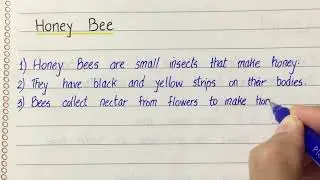 Honey Bee
1) Honey Bees are small insects that make honey.
2) They have black and yellow strips on their bodies.
3) Bees collect nectar from flowers to make hon